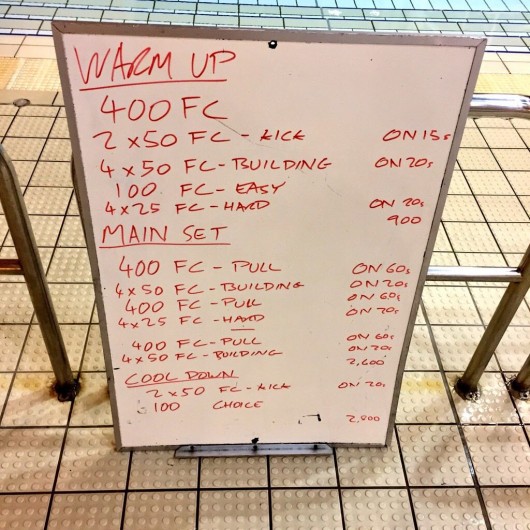 WARM UP
400 FC
2 x 50 FC - KICK ON 15s
4 x 50 FC - BUILDING ON 20s
100 FC - EASY
4 x 25 FC - HARD ON 20s
900
MAIN SET
400 FC - PULL ON 60s
4 x 50 FC - BUILDING ON 20s
400 FC - PULL ON 60s
4 x 25 FC - HARD ON 20s
400 FC - PULL ON 60s
4 x 50 FC - BUILDING ON 20s
2,600
COOL DOWN
2 x 50 FC - KICK ON 20s
100 CHOICE
2,800